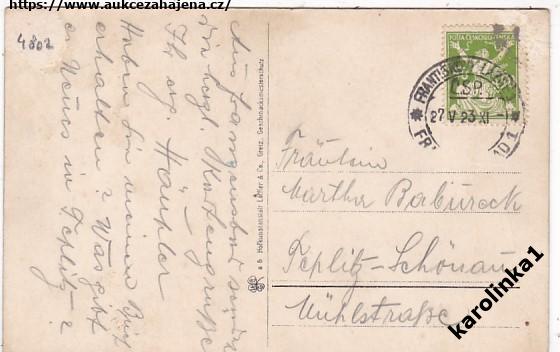 https://www.aukcezahajena.cz/
4802
Aus Franzensbad sendet
die herzl. Kartengrüße
Ihr erg. Häupler
Haben Sie meinen Brief
erhalten? Was gibt
es Neues in Teplitz?
a b Hofkunstanstalt Löffler & Co., Greiz. Geschmacksmusterschutz
POŠTA ČESKOSLOVENSKÁ
FRANTIŠKOVY LÁZNĚ
ČSR
27 V 23 XI
Fräulein
Martha Babureck
Teplitz-Schönau
Mühlstraße
karolinka1